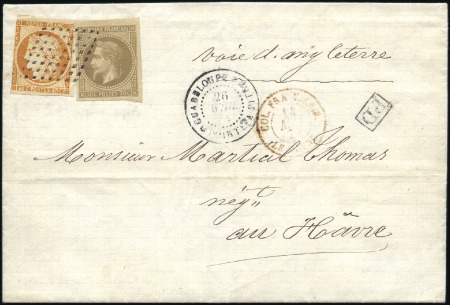 REPUB. FRANC.
voie d'angleterre
GUADELOUPE
26
COL. FRA
PD
Monsieur Martial Thomas
négt
au Hâvre